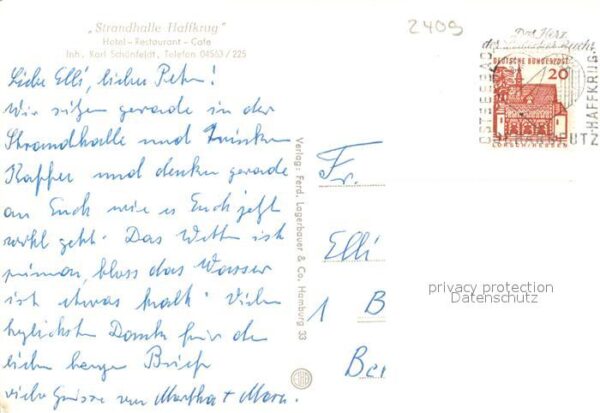 „Strandhalle Haffkrug"
Hotel - Restaurant - Cafe
Inh. Karl Schünfeldt, Telefon 04563 / 225
2409
Liebe Elli, lieber Peter!
Wir sitzen gerade in der
Strandhalle und trinken
Kaffee und denken gerade
an Euch wie es Euch jetzt
wohl geht. Das Wetter ist
prima, bloss das Wasser
ist etwas kalt. Vielen
herzlichsten Dank für den
lieben langen Brief
viele Grüsse von Martha +
Verlag: Ferd. Lagerbauer & Co. Hamburg 33
Fr.
Elli
1 B
Ber
Das Herz
der Lübecker Bucht
DEUTSCHE BUNDESPOST
20
LORSCH/HESSEN
OSTSEEBAD
SCHARBEUTZ
HAFFKRUG
privacy protection
Datenschutz